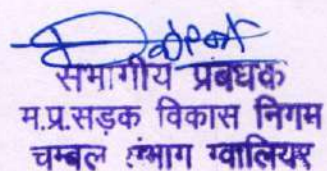 संभागीय प्रबंधक
म.प्र.सड़क विकास निगम
चम्बल संभाग ग्वालियर